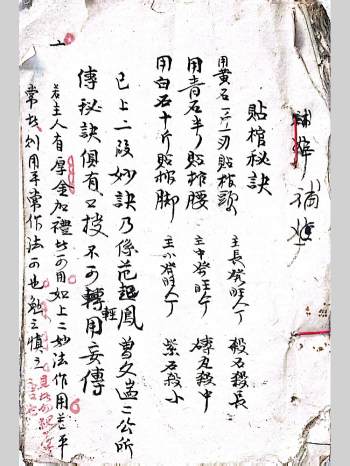 貼棺秘訣
用黃石一刃貼棺頭 主長發旺人丁 殺石殺長
用青石半刀貼棺腰 主中發旺人丁 磚瓦殺中
用白石十斤貼棺脚 主小發旺人丁 紫石殺小
已上二段妙訣乃係范越鳳曾文辿二公所
傳秘訣俱有口授不可輕轉用妄傳
若主人有厚金加禮者可用如上二妙法作用若平
常者則用平常作法可也勉之慎之